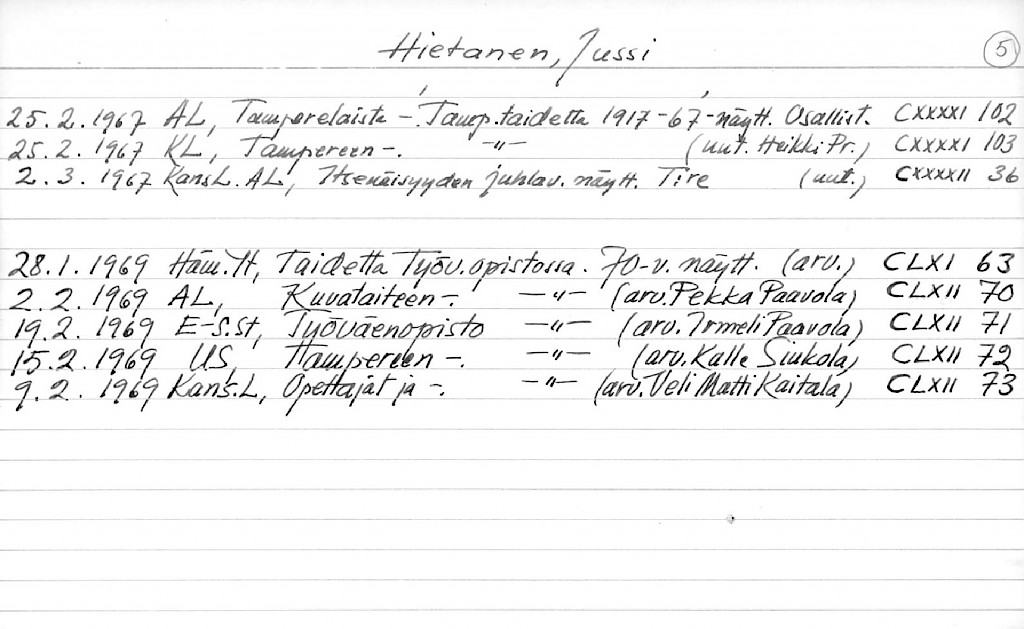 Hietanen, Jussi 5
25.2.1967 AL, Tamperelaista -. Tamp. taidetta 1917-67-näytt. Osallist. CXXXXI 102
25.2.1967 KL, Tampereen -. -"- (uut. Heikki Pr.) CXXXXI 103
2.3.1967 Kans.L. AL, Itsenäisyyden juhlav. näytt. Tire (uut.) CXXXXII 36
28.1.1969 Häm.Y, Taidetta Työv.opistossa. 70-v. näytt. (arv.) CLXI 63
2.2.1969 AL, Kuvataiteen -. -"- (arv. Pekka Paavola) CLXII 70
19.2.1969 E-S.St, Työväenopisto -"- (arv. Irmeli Paavola) CLXII 71
15.2.1969 US, Tampereen -. -"- (arv. Kalle Siukola) CLXII 72
9.2.1969 Kans.L, Opettajat ja -. -"- (arv. Veli Matti Kaitala) CLXII 73